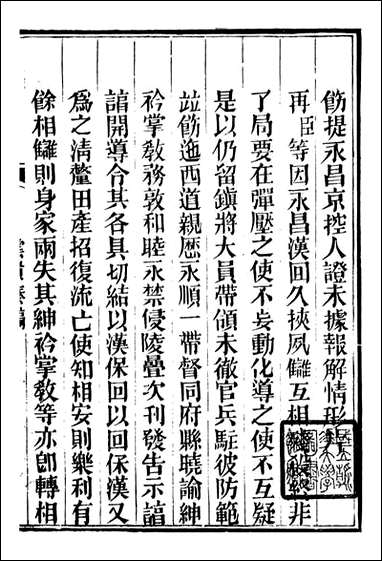 飭提永昌京控人證未據報解情形
再臣等因永昌漢回久挾夙讎互相 非
了局要在彈壓之使不妄動化導之使不互疑
是以仍留鎮將大員帶領未徹官兵駐彼防範
竝飭迤西道親歷永順一帶督同府縣曉諭紳
衿掌敎務敦和睦永禁侵陵疊次刊發告示諳
諳開導令其各具切結以漢保回以回保漢又
爲之清釐田產招復流亡使知相安則樂利有
餘相讎則身家兩失其紳衿掌敎等亦卽轉相